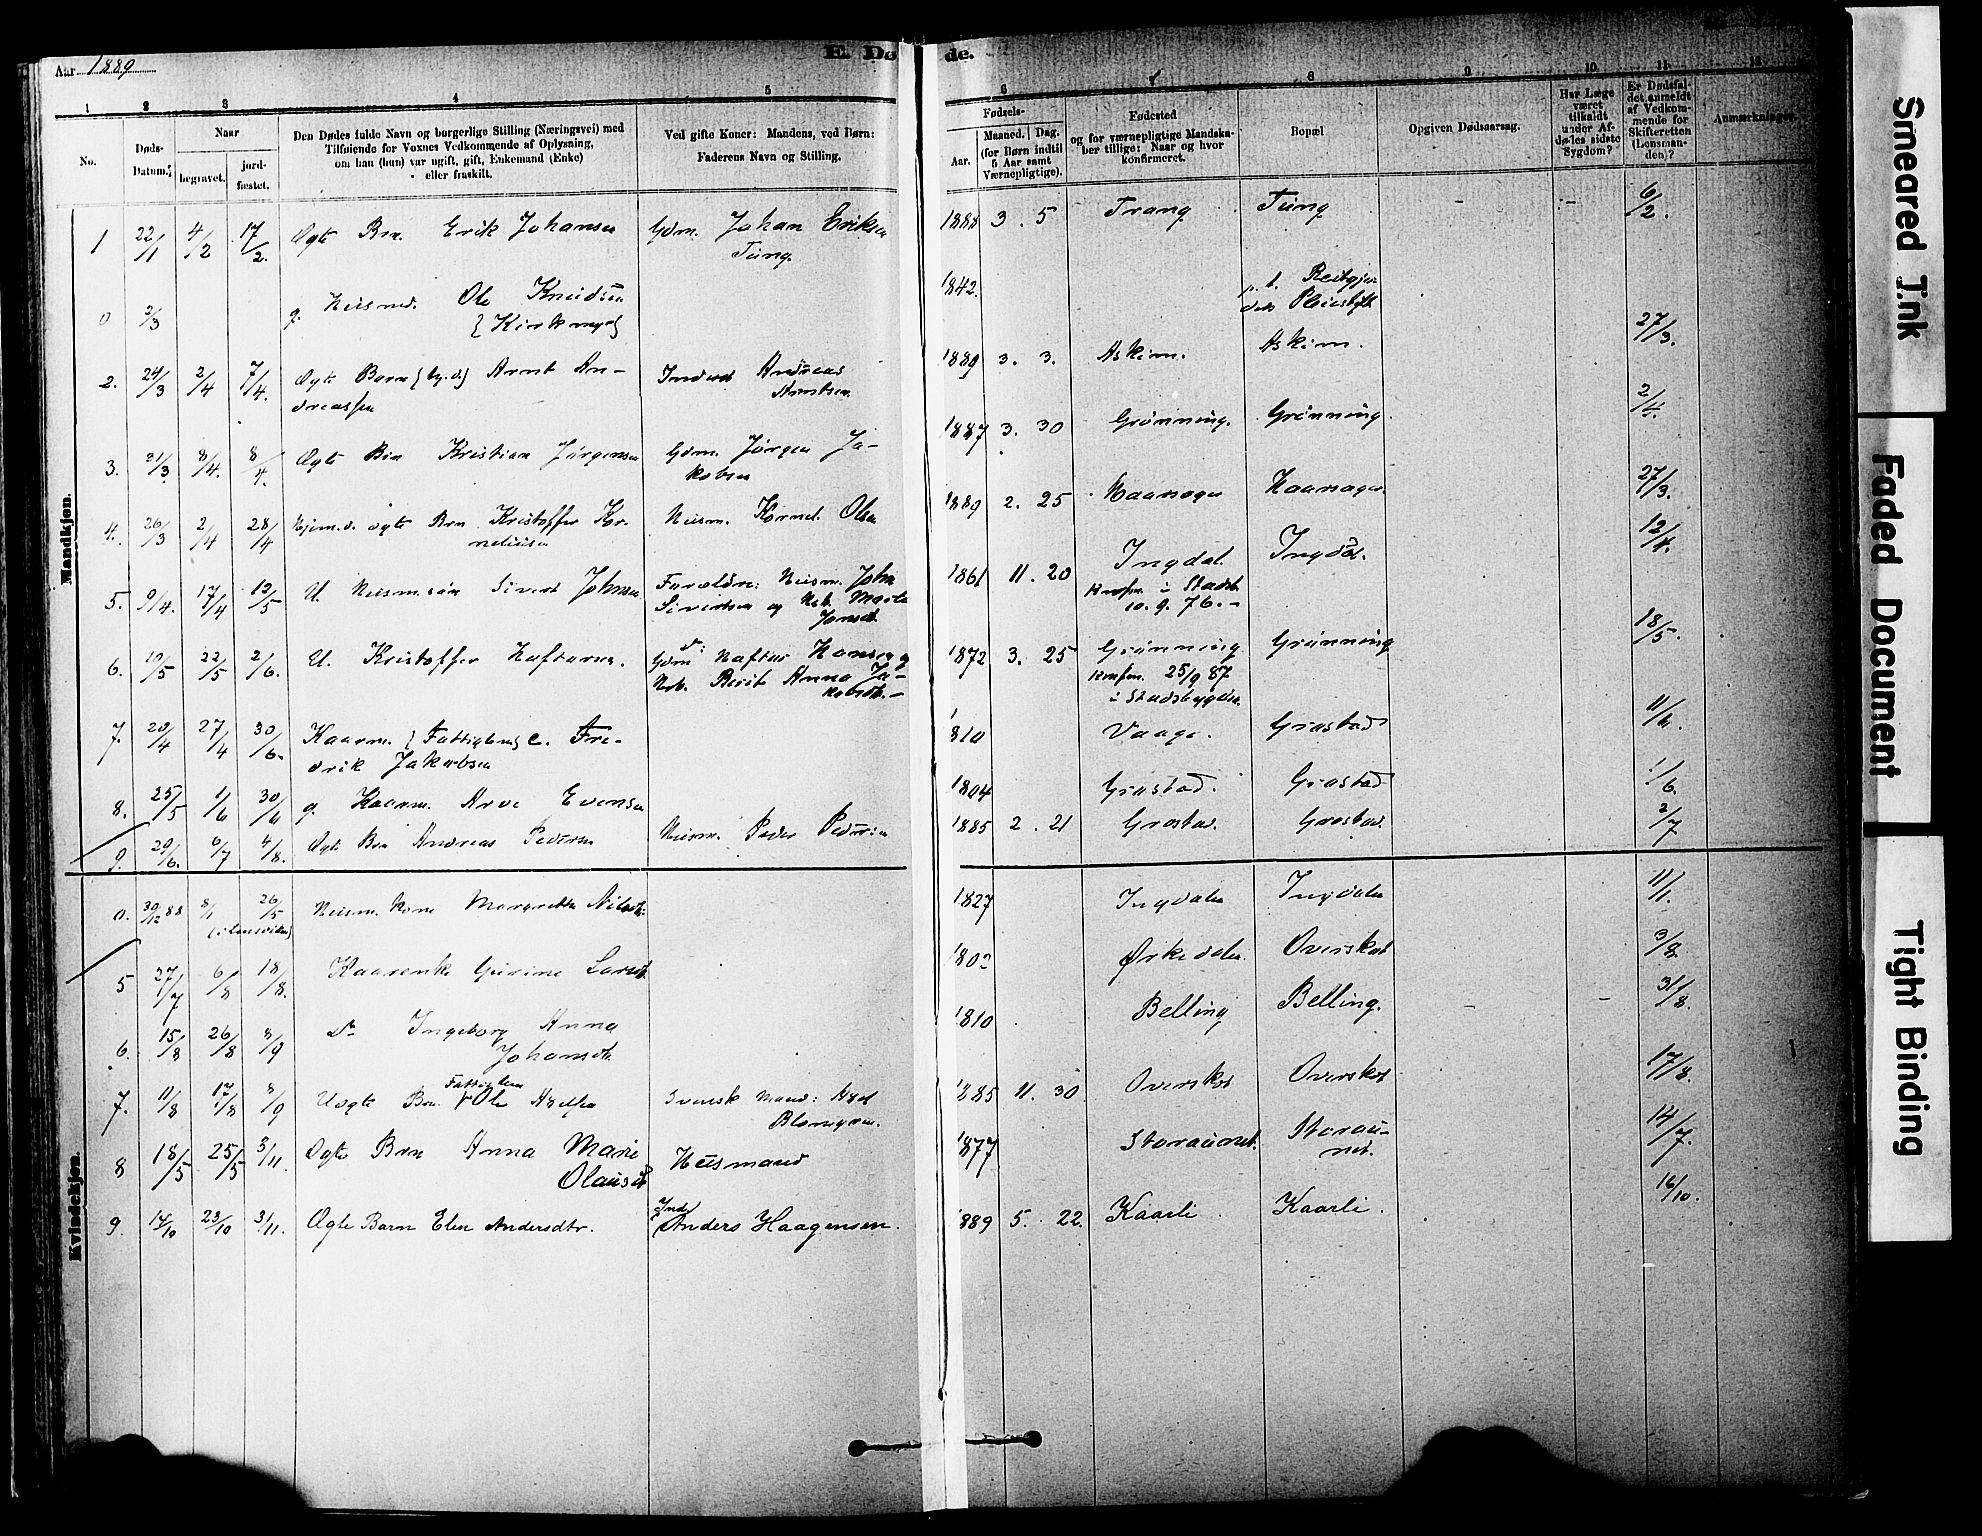 E. Dø de.
Aar 1889
1 2 3 4 5 6 8 9 10 11 12
No.
Døds-
Datum.
Naar
begravet.
jord-
fæstet.
Den Dødes fulde Navn og borgerlige Stilling (Næringsvei) med
Tilføiende for Voxnes Vedkommende af Oplysning,
om han (hun) var ugift, gift, Enkemand (Enke)
eller fraskilt.
Ved gifte Koner: Mandens, ved Børn:
Faderens Navn og Stilling.
Fødsels-
Aar.
Maaned. Dag.
(for Børn indtil
5 Aar samt
Værnepligtige).
Fødested
og for værnepligtige Mandska-
ber tillige: Naar og hvor
konfirmeret.
Bopæl
Opgiven Dødsaarsag.
Har Læge
været
tilkaldt
under Af-
dødes sidste
Sygdom?
Er Dødsfal-
det anmeldt
af Vedkom-
mende for
Skifteretten
(Lensman-
den)?
Anmærkninger.
Mandkjøn.
1 22/1 4/2 17/2. Ægte Brn. Erik Johansen Gdm. Johan Eriksen 1888 3. 5 Trang Tung - - 6/2.
Tung.
0 2/3 g. Husmd. Ole Knudsen 1842. p.t. Reitgjer-
{Kirkmyr}
2. 24/3 2/4 7/4. Ægte Barn Arnt An- Inderst Andreas 1889 3. 3. Askim. Askim. 27/3.
dreassen Arntsen
3. 31/3 8/4. 8/4. Ægte Brn Kristian Jørgensen Gdm. Jørgen Ja- 1887 3. 30 Grønning. Grønning. 2/4.
kobsen
4. 26/3 2/4 28/4 Hjem.d. ægte Brn Kristoffer Kor- Husm. Kornel. Olsen 1889 2. 25 27/3.
neliusen
5. 9/4. 17/4 12/5 U. Husmsøn Sivert Johnsen Forældre: Husm. John 1861 11. 20 Ingdal. Ingdal. 12/4.
Sivertsen og Hst. Marta Konfm. i Stadsb.
Jonsdt. 10. 9. 76. -
6. 19/5 22/5 2/6. U. Kristoffer Naftorsen. Gdm Naftor Hansen og 1872 3. 25 Grønning Grønning 18/5.
Hst. Berit Anna Ja- Konfm. 25/9 87
kobsdt. - i Stadsbygden.
7. 20/4 27/4 30/6. Kaarm. {Fattiglem} e. Fre- 1810 Vaage. Grøstad
drik Jakobsen
8. 25/5 1/6 30/6 g. Kaarm. Arve Evensen 1804 Grøstad. Grøstad 1/6.
9. 29/6. 6/7 4/8. Ægte Brn Andreas Pedersen Husm. Peder Pedersen 1885 2. 21 Grøstad. Grøstad. 2/7
Kvindekjøn.
0. 30/12 88 8/1 26/5 Husm. Kone Margrethe Nilsdt. 1827 Ingdalen Ingdalen 11/1.
5 27/7 6/8 18/8. Kaarenke Gurine Larsdt. 1802 Ørkedalen. Overskot 3/8.
6. 15/8 26/8 8/9 Do Ingeborg Anna 1810 Belling Belling. - - 31/8
Johansdt.
Fattiglem
7. 11/8 17/8 8/9 Uægte Brn. Svensk Mand: Axel 1885 11. 30 Overskot Overskot 17/8.
8 18/5 25/5 3/11. Ægte Brn Anna Marie Husmand 1877 Storaunet. Storau- 14/7.
Olausdt net.
9. 14/10 23/10 3/11. Ægte Barn Elen Andersdtr. Ind. Anders Haagensen. 1889 5. 22. Kaarli. Kaarli. 16/10.
Smeared Ink
Faded Document
Tight Binding